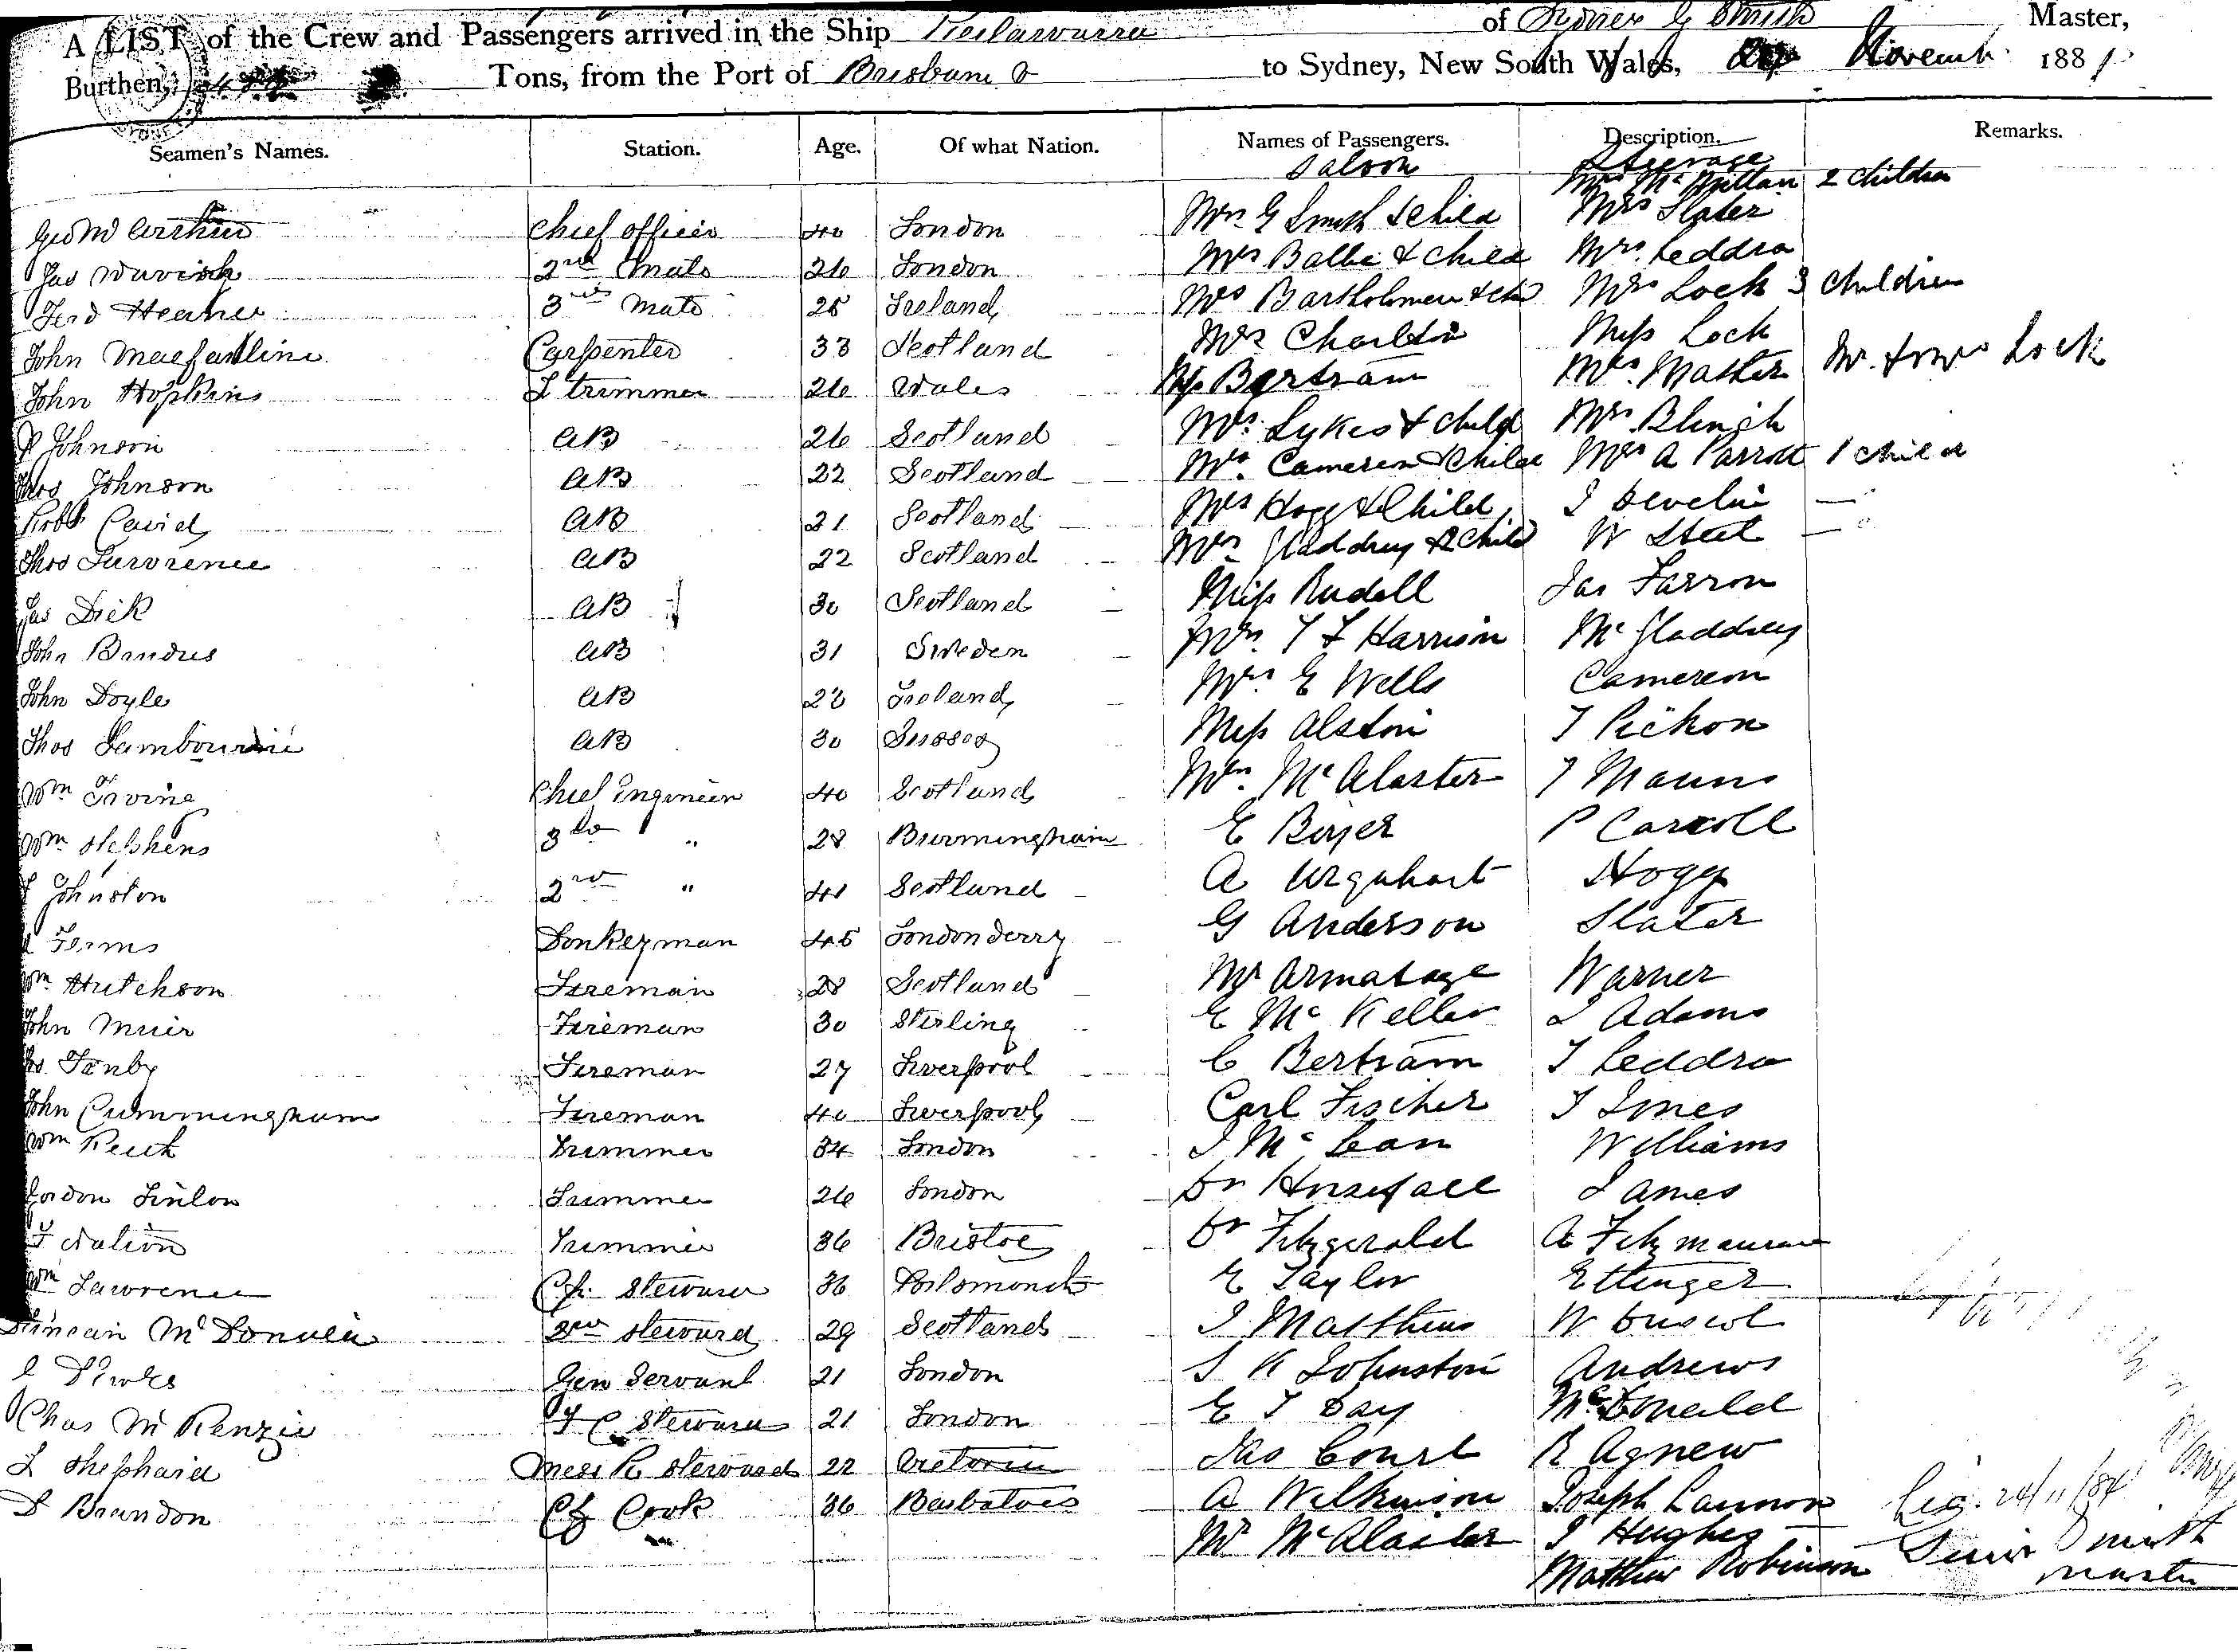 A LIST of the Crew and Passengers arrived in the Ship Keilawarra of Sydney G Smith Master,
Burthen, Tons, from the Port of Brisbane to Sydney, New South Wales, Novemb 188
Seamen's Names. Station. Age. Of what Nation. Names of Passengers. Description. Remarks.
Saloon Steerage
Mrs McMillan 2 children
Geo M Arthur Chief officer 40 London Mrs G Smith & Child Mrs Slater
Jas 2nd Mate 26 London Mrs Balbi & Child Mrs Ceddra
Ferd Heather 3rd Mate 25 Ireland Mrs Bartholomew & Chd Mrs Lock 3 Children
John Macfarline Carpenter 33 Scotland Mrs Charlton Miss Lock
John Hopkins L trimmer 26 Wales Miss Bertram Mrs. Mather Mr. & Mrs Lock
P Johnson AB 26 Scotland Mrs. Sykes & Child Mrs. Bligh
Thos Johnson AB 22 Scotland Mrs. Cameron & Child Mrs A Parrott 1 child
Robt David AB 21 Scotland Mrs Hogg & Child J Develin
Thos Lawrence AB 22 Scotland Mrs Gladdrey & 2 Child W Steel
Jas Dick AB 30 Scotland Miss Rudell Jas Farron
John Brandus AB 31 Sweden Mrs. T F Harrison Mc Gladdrey
John Doyle AB 23 Ireland Mrs. E Wells Cameron
Thos Lambourne AB 30 Sussex Miss Alston T Pichon
Wm Irvine Chief Engineer 40 Scotland Mrs. McAlaster J Manns
Wm Stephens 3rd " 28 Burmingham E Boyer P Carroll
J Johnston 2nd " 41 Scotland A Urquhart Hogg
Ferms Donkeyman 45 Londonderry G Anderson Slater
Wm Hutchson Fireman 28 Scotland Mr Armatage Warner
John Muir Fireman 30 Sterling E McKellar J Adams
Fenby Fireman 27 Liverpool C Bertram J Ceddra
John Cummingham Fireman 40 Liverpool Carl Fischer J Jones
Wm Trimmer 34 London J McLean Williams
Gordon Finlon Trimmer 26 London Dr Horsefall James
F Nation Trimmer 36 Bristol Dr Fitzgerald A Fitzmaurice
Wm Lawrence Ch. Steward 36 E Taylor Ettinger
Duncan McDonald 2nd Steward 29 Scotland J Matthews W Driscol
Gen Servant 21 London J K Johnston Andrews
Chas McKenzie F C Steward 21 London E T Day McDonald
L Shephard Mess R Steward 22 Victoria Jas Court R Agnew
D Brandon Ch Cook 36 Barbados A Wilkinson Joseph Lannon
Mr McAlaster J Hughes Smith
Matthew Robinson Master